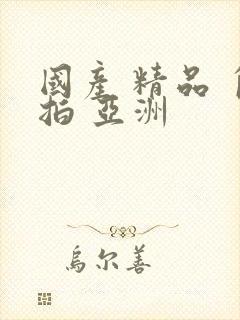 國產 精品 
拍 亞洲
烏尔善